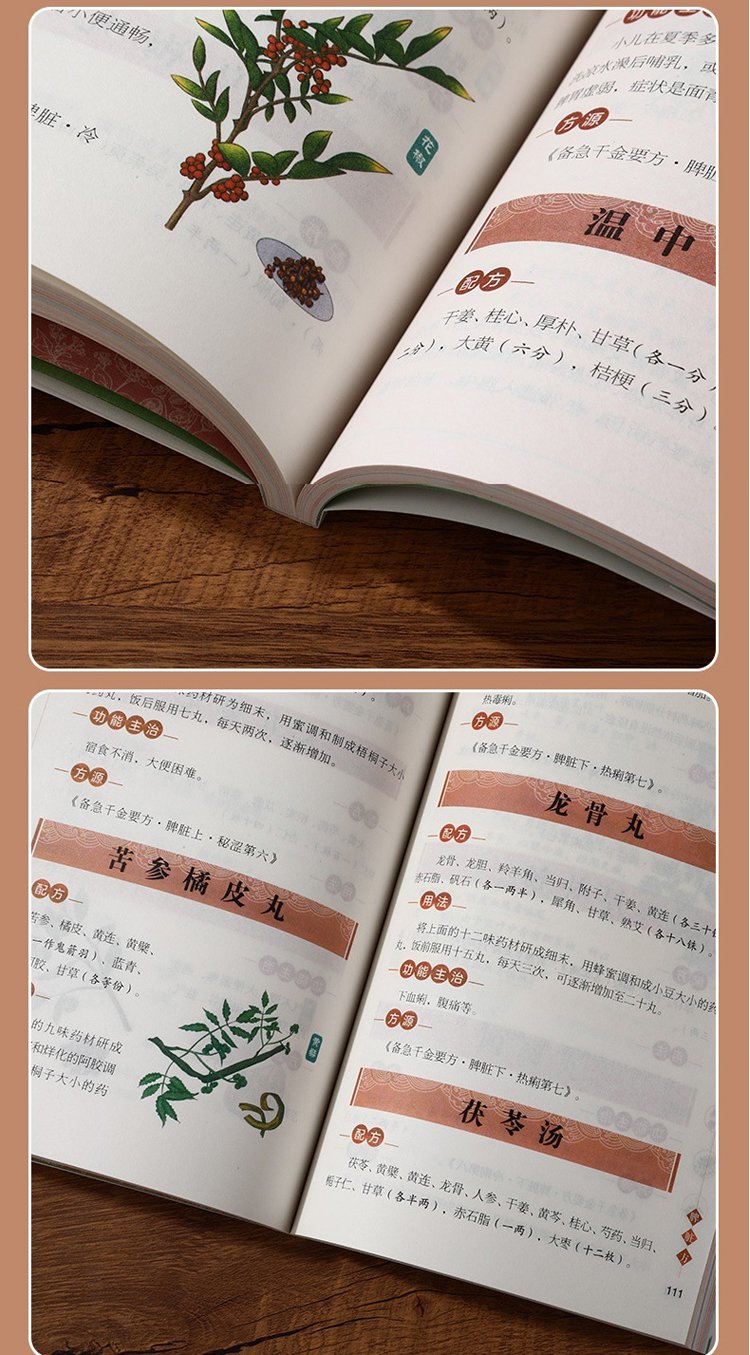 小便通畅，
脏·冷
花椒
两）。
功能主治
小儿在夏季多
洗凉水澡后哺乳，或
脾胃虚弱，症状是面青
方源
《备急千金要方·脾脏
温中
配方
干姜、桂心、厚朴、甘草（各一分）
二分），大黄（六分），桔梗（三分）。
药材研为细末，用蜜调和制成梧桐子大小
药丸，饭后服用七丸，每天两次，逐渐增加。
功能主治
宿食不消，大便困难。
方源
《备急千金要方·脾脏上·秘涩第六》
苦参橘皮丸
配方
苦参、橘皮、黄连、黄檗、
一作鬼箭羽），蓝青、
阿胶、甘草（各等份）。
的九味药材研成
和烊化的阿胶调
桐子大小的药
黄檗
热毒痢。
方源
《备急千金要方·脾脏下·热痢第七》。
龙骨丸
配方
龙骨、龙胆、羚羊角、当归、附子、干姜、黄连（各三十铢
赤石脂、矾石（各一两半），犀角、甘草、熟艾（各十八铢）。
用法
将上面的十二味药材研成细末，用蜂蜜调和成小豆大小的药
丸，饭前服用十五丸，每天三次，可逐渐增加至二十丸。
功能主治
下血痢，腹痛等。
方源
《备急千金要方·脾脏下·热痢第七》。
茯苓汤
配方
茯苓、黄檗、黄连、龙骨、人参、干姜、黄芩、桂心、芍药、当归、
栀子仁、甘草（各半两），赤石脂（一两），大枣（十二枚）。
脾脏方
111